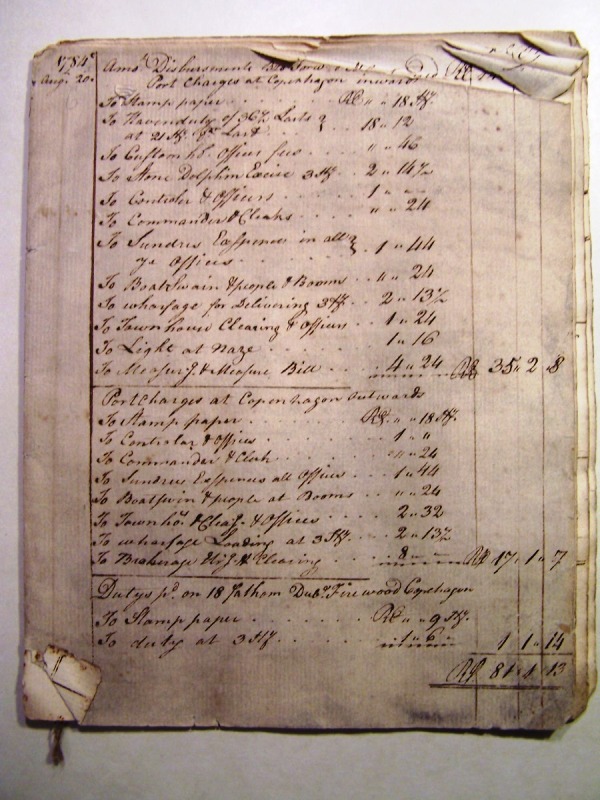 1784
Augt. 20.
Amt. Disbursements Bro't forw.
Port Charges at Copenhagen inwards
To Stamp paper . . . . R " " 18 ſtʃ.
To Havenduty of 36½ Lasts
at 21 ſtʃ. pr. Last . . . 18 " 12
To Custom hs. Officer fees . . " " 46
To Stone Dolphin Excise 3 ſtʃ . . 2 " 14½
To Controler & Officers . . . 1 " "
To Commander & Clerks . . . . " " 24
To Sundres Exspences in all
ye Offices . . . . 1 " 44
To Boatswain & people & Booms . . " " 24
To wharfage for Delivering 3 ſtʃ . . 2 " 13½
To Townhouse Clearing & Officers . . 1 " 24
To Light at Naze . . . . 1 " 16
To Measurg. & Measure Bill . . 4 " 24 R 35 " 2 " 8
Port Charges at Copenhagen outwards
To Stamp paper . . . . R " " 18 ſtʃ.
To Controlar & Offices . . . . 1 " "
To Commander & Clerk . . . . " " 24
To Sundres Exspences all Offices . . 1 " 44
To Boatswin & people at Booms . . " " 24
To Townho. & Clear. & Offices . . 2 " 32
To wharfage Loading at 3 ſtʃ . . 2 " 13½
To Brokerage & Clearing . . . 8 " — R 17 " 1 " 7
Dutys pd. on 18 fathom Firewood Copenhagen
To Stamp paper . . . . R " " 9 ſtʃ.
To duty at 3 ſtʃ . . . . 1 " 6 " 1 1 " 14
R 81 " 1 " 13